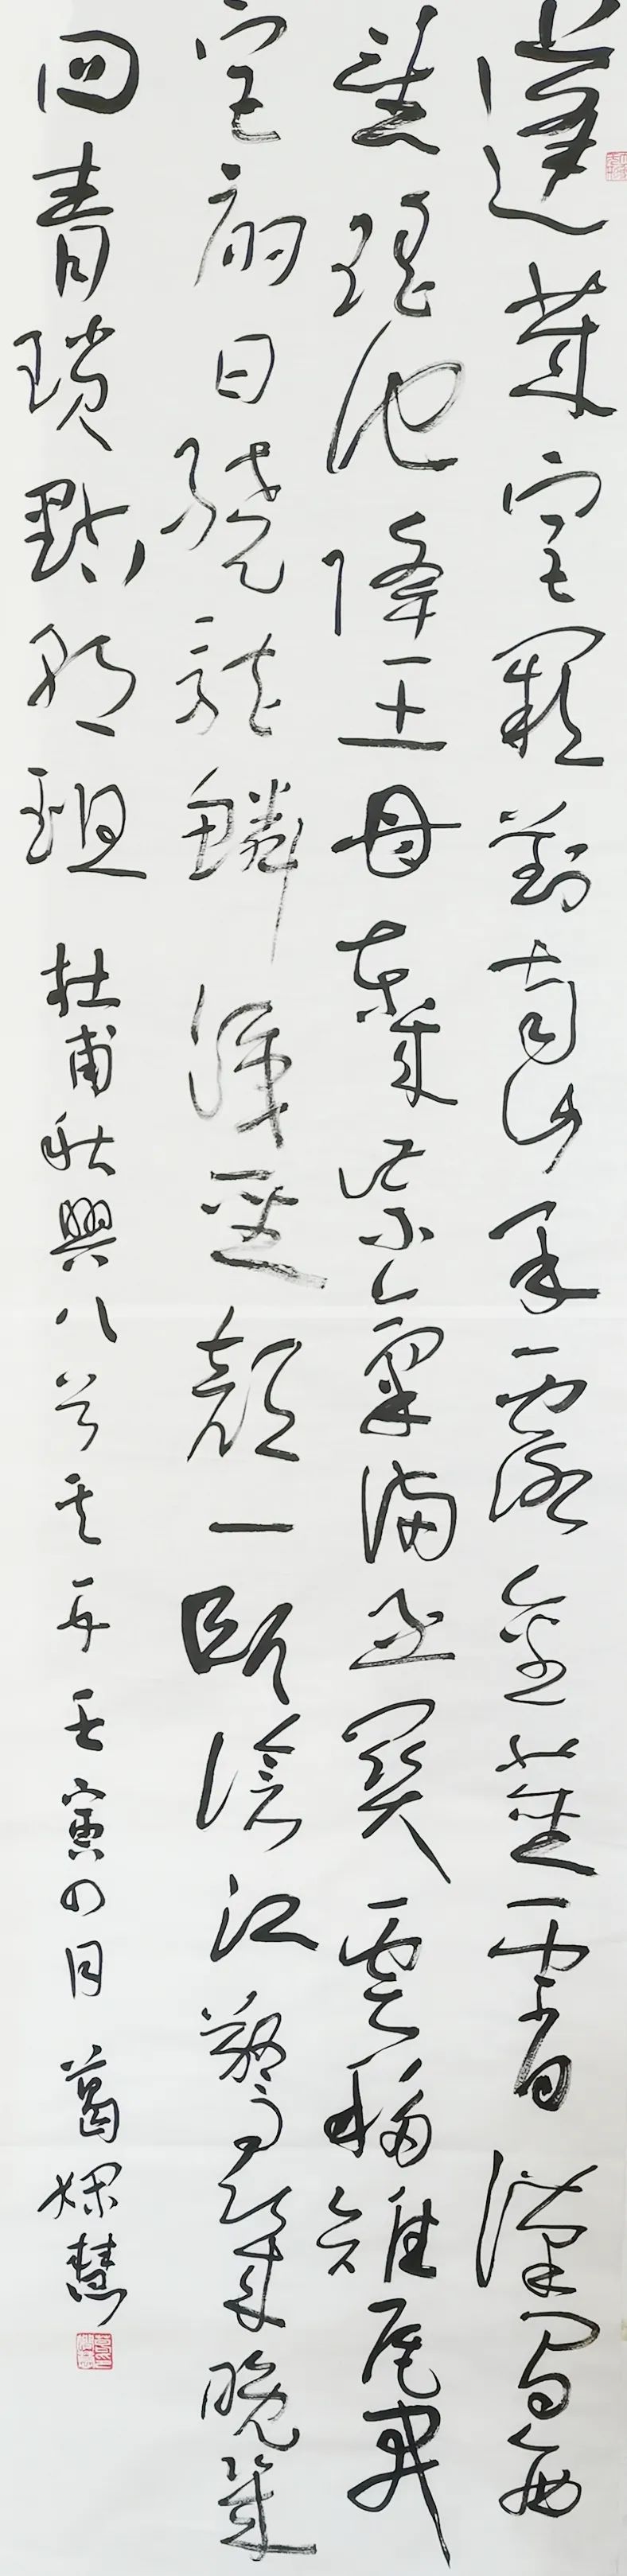 蓬萊宮闕對南山承露金莖霄漢間西
望瑤池降王母東來紫氣滿函關雲移雉尾開
宮扇日繞龍鱗識聖顏一臥滄江驚歲晚幾
回青瑣點朝班 杜甫秋興八首其五壬寅四月 葛 慧